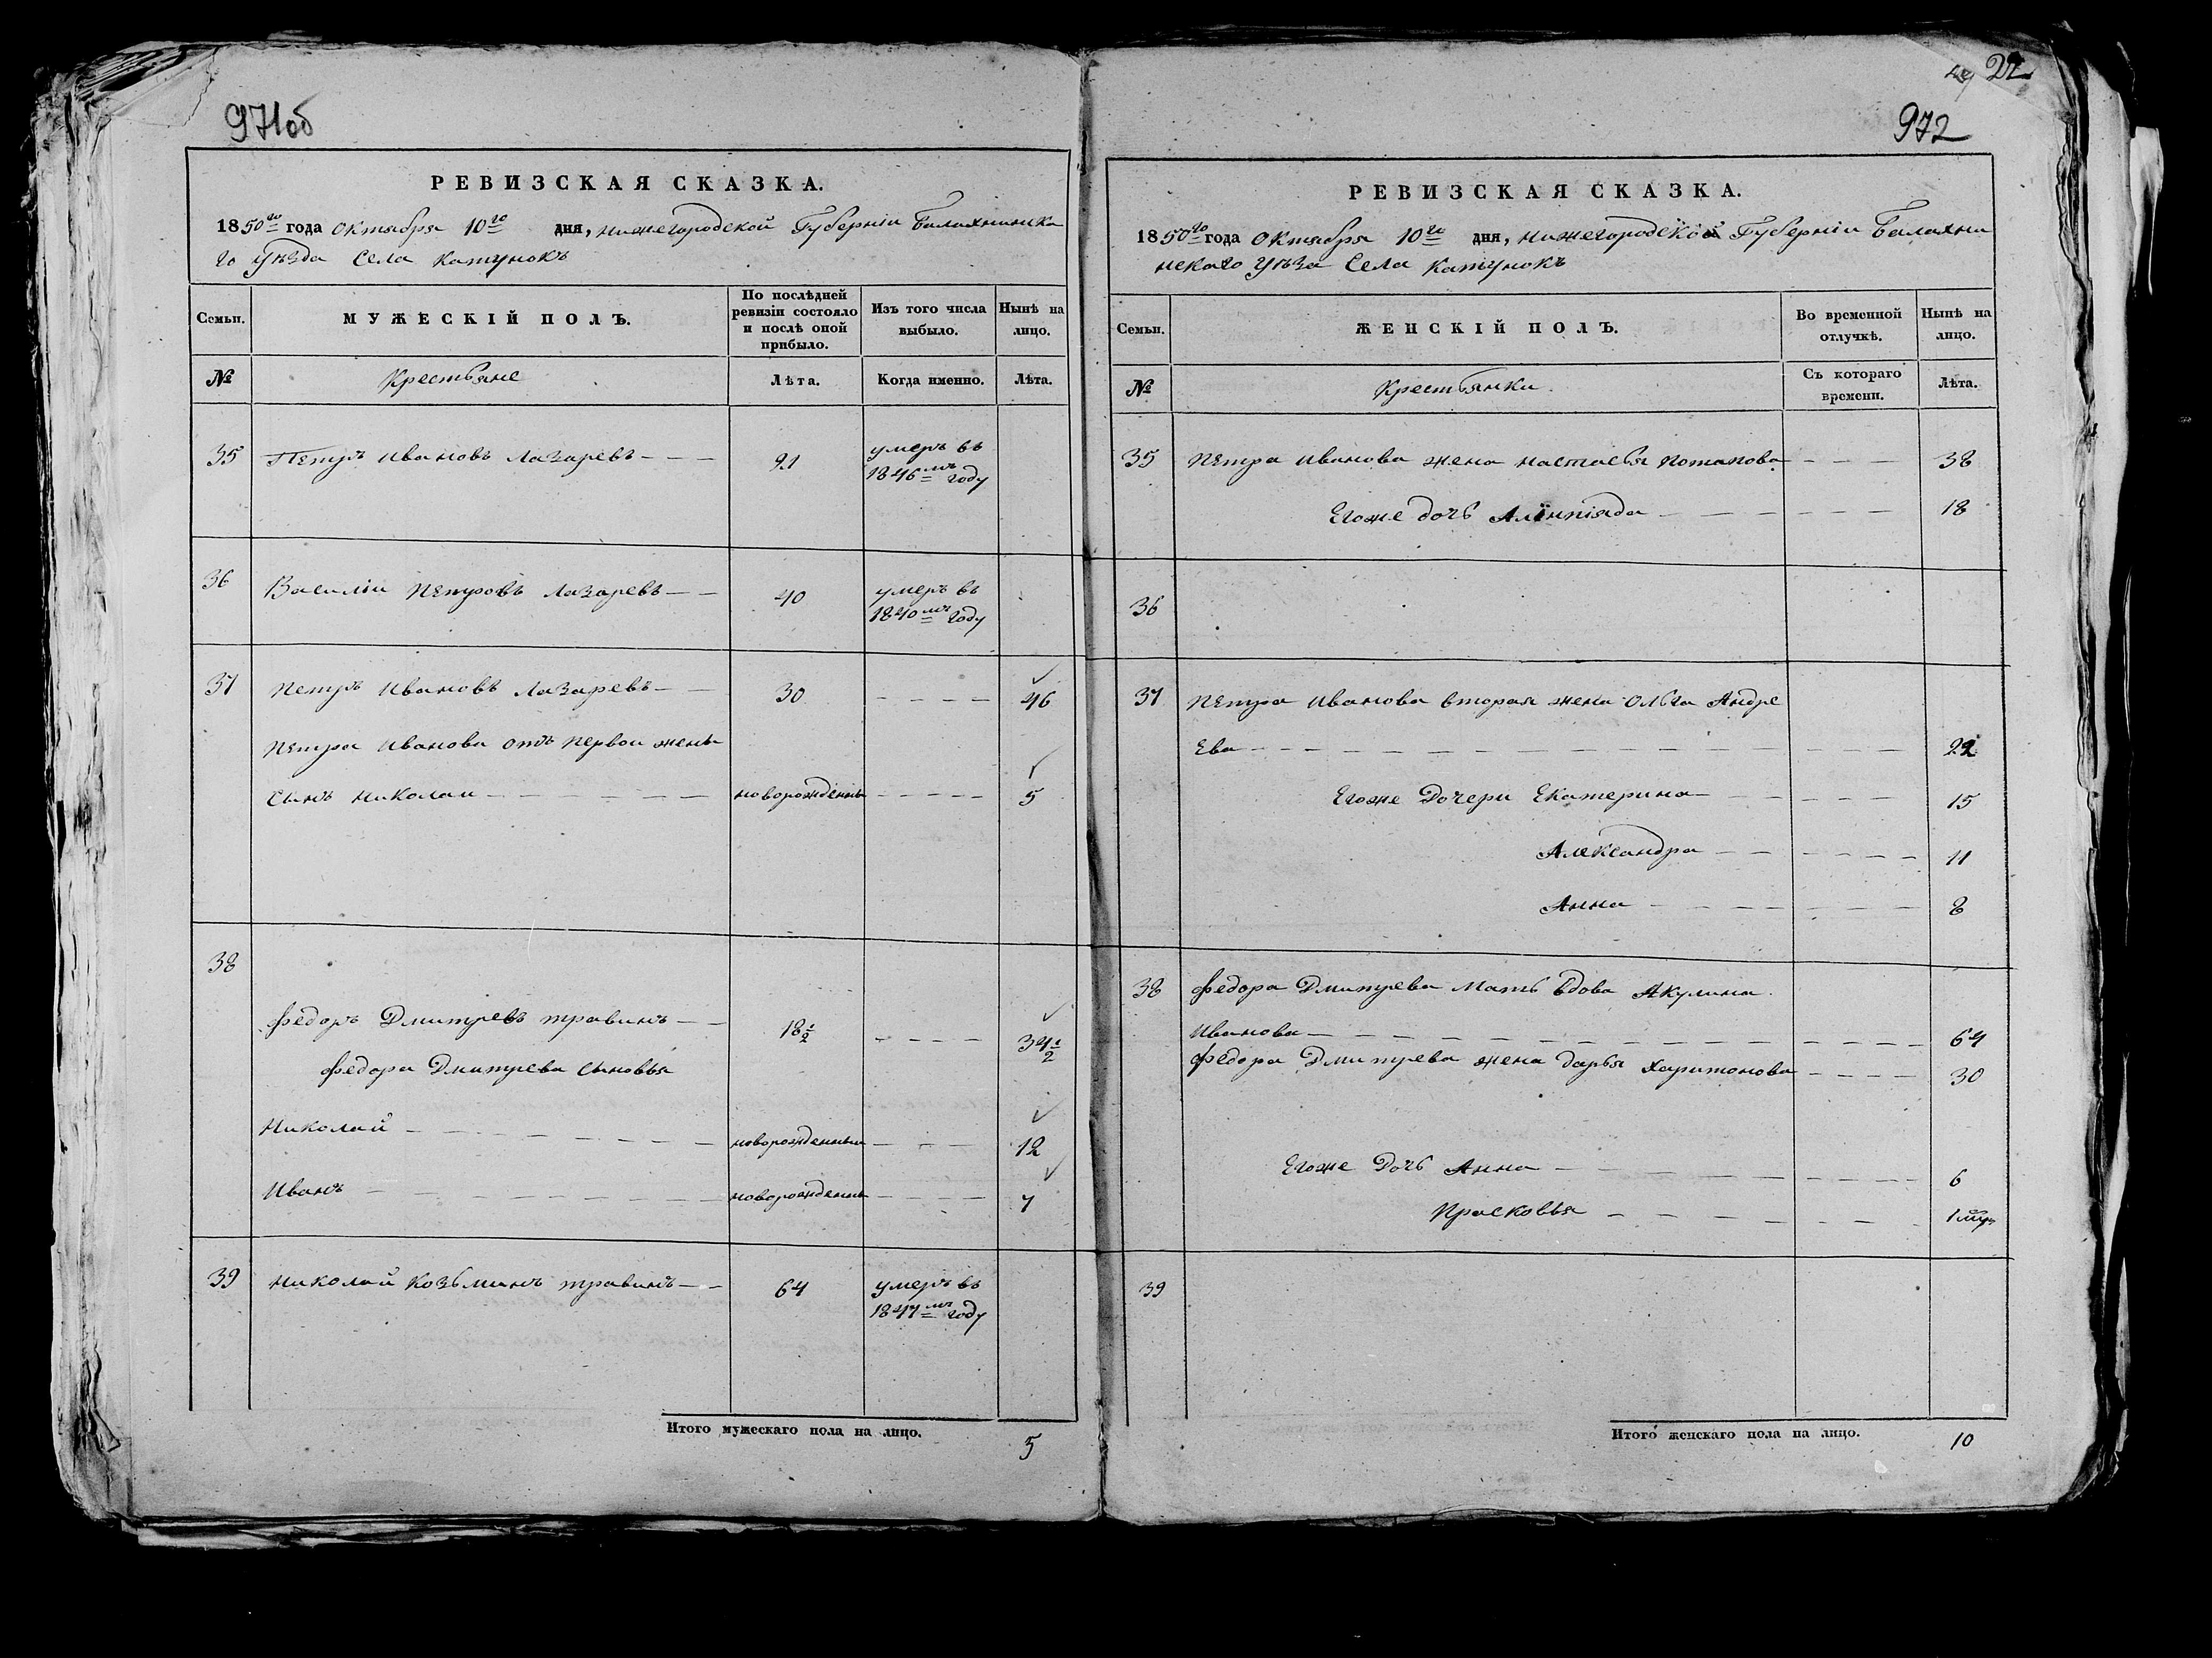 971об
РЕВИЗСКАЯ СКАЗКА.
1850го года Октября 10го дня, Нижегородской Губерніи Балахнинска
го Уѣзда Села Катунокъ
Семьи.
МУЖЕСКІЙ ПОЛЪ.
По послѣдней ревизіи состояло и послѣ оной прибыло.
Изъ того числа выбыло.
Нынѣ на лицо.
№
Крестьяне
Лѣта.
Когда именно.
Лѣта.
35 Петръ Ивановъ Лазаревъ — — 21 умеръ въ
1846мъ году
36 Василіи Петровъ Лазаревъ — — 40 умеръ въ
1840мъ году
37 Петръ Ивановъ Лазаревъ — — 30 — — — — 46
Петра Иванова отъ первои жены
Сынъ Николаи — — — новорожденны — — — — 5
38
Федоръ Дмитревъ травинъ — — 18½ — — — — 34½
Федора Дмитрева сыновья
Николай — — — новорожденныи — — — 12
Иванъ — — — новорожденны — — — — 7
39 Николай Козьминъ травинъ — — 64 умеръ въ
1847мъ году
Итого мужескаго пола на лицо. 5
27
972
РЕВИЗСКАЯ СКАЗКА.
1850го года Октября 10го дня, Нижегородской Губерніи Балахни
нскаго Уѣза Села Катунокъ
Семьи.
ЖЕНСКІЙ ПОЛЪ.
Во временной отлучкѣ.
Нынѣ на лицо.
№
Крестьянки
Съ котораго времени.
Лѣта.
35 Петра Иванова жена настасья Потапова — — — 38
Егоже дочь Алинпіяда — — — 18
36
37 Петра Иванова вторая жена Ольга Андре
Ева — — — 22
Егоже Дочери Екатерина — — — 15
Александра — — — 11
Анна — — — 8
38 Федора Дмитрева Мать вдова Акулина
Иванова — — — 64
Федора Дмитрева жена дарья Харитонова — — — 30
Егоже Дочь Анна — — — 6
Прасковья — — — 1
39
Итого женскаго пола на лицо. 10